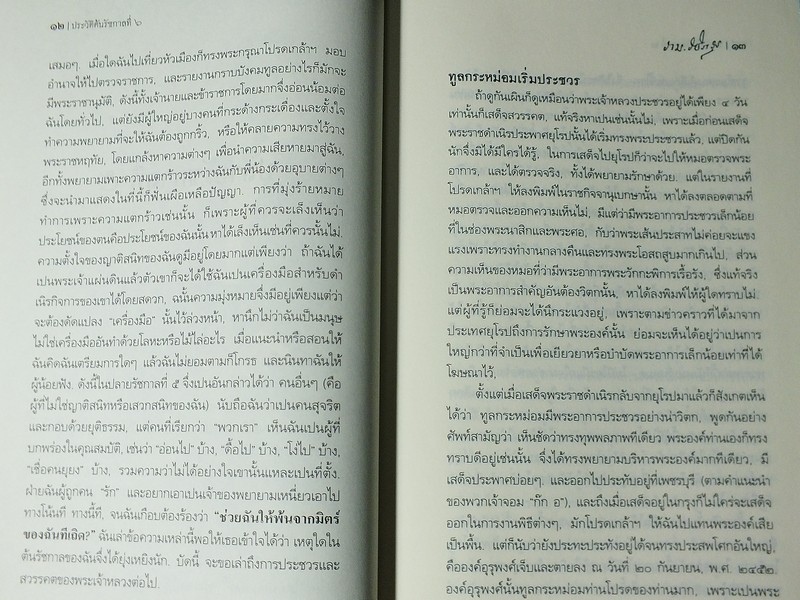 ๑๒ | ประวัติต้นรัชกาลที่ ๖
เสมอๆ. เมื่อใดฉันไปเที่ยวหัวเมืองก็ทรงพระกรุณาโปรดเกล้าฯ มอบ
อำนาจให้ไปตรวจราชการ, และรายงานกราบบังคมทูลอย่างไรก็มักจะ
มีพระราชานุมัติ, ดังนี้ทั้งเจ้านายและข้าราชการโดยมากจึ่งอ่อนน้อมต่อ
ฉันโดยทั่วไป, แต่ยังมีผู้ใหญ่อยู่บางคนที่กระด้างกระเดื่องและตั้งใจ
ทำความพยายามที่จะให้ฉันต้องถูกกริ้ว, หรือให้คลายความทรงไว้วาง
พระราชหฤทัย, โดยแกล้งหาความต่างๆ เพื่อนำความเสียหายมาสู่ฉัน,
อีกทั้งพยายามเพาะความแตกร้าวระหว่างฉันกับพี่น้องด้วยอุบายต่างๆ
ซึ่งจะนำมาแสดงในที่นี้ก็ฟั่นเผือเหลือปัญญา. การที่มุ่งร้ายหมาย
ทำการเพราะความแตกร้าวเช่นนั้น ก็เพราะผู้ที่ควรจะเล็งเห็นว่า
ประโยชน์ของตนคือประโยชน์ของฉันนั้นหาได้เล็งเห็นเช่นที่ควรนั้นไม่.
ความตั้งใจของญาติสนิทของฉันดูมีอยู่โดยมากแต่เพียงว่า ถ้าฉันได้
เปนพระเจ้าแผ่นดินแล้วตัวเขาก็จะได้ใช้ฉันเปนเครื่องมือสำหรับดำ
เนิรกิจการของเขาได้โดยสดวก, ฉนั้นความมุ่งหมายจึ่งมีอยู่เพียงแต่ว่า
จะต้องดัดแปลง “เครื่องมือ” นั้นไว้ล่วงหน้า, หานึกไม่ว่าฉันเปนมนุษ
ไม่ใช่เครื่องมืออันทำด้วยโลหะหรือไม้ไล่อะไร เมื่อแนะนำหรือสอนให้
ฉันคิดฉันเตรียมการใดๆ แล้วฉันไม่ยอมตามก็โกรธ และนินทาฉันให้
ผู้น้อยฟัง. ดังนี้ในปลายรัชกาลที่ ๕ จึ่งเปนอันกล่าวได้ว่า คนอื่นๆ (คือ
ผู้ที่ไม่ใช่ญาติสนิทหรือเสวกสนิทของฉัน) นับถือฉันว่าเปนคนสุจริต
และกอบด้วยยุติธรรม, แต่คนที่เรียกว่า “พวกเรา” เห็นฉันเปนผู้ที่
บกพร่องในคุณสมบัติ, เช่นว่า “อ่อนไป” บ้าง, “ดื้อไป” บ้าง, “โง่ไป” บ้าง,
“เชื่อคนยุยง” บ้าง, รวมความว่าไม่ได้อย่างใจเขานั้นแหละเปนที่ตั้ง.
ฝ่ายฉันผู้ถูกคน “รัก” และอยากเอาเปนเจ้าของพยายามเหนี่ยวเอาไป
ทางโน้นที ทางนี้ที, จนฉันเกือบต้องร้องว่า “ช่วยฉันให้พ้นจากมิตร์
ของฉันทีเถิด?” ฉันเล่าข้อความเหล่านี้พอให้เธอเข้าใจได้ว่า เหตุใดใน
ต้นรัชกาลของฉันจึ่งได้ยุ่งเหยิงนัก. บัดนี้ จะขอเล่าถึงการประชวรและ
สวรรคตของพระเจ้าหลวงต่อไป.
| ๑๓
ทูลกระหม่อมเริ่มประชวร
ถ้าดูกันเผินก็ดูเหมือนว่าพระเจ้าหลวงประชวรอยู่ได้เพียง ๔ วัน
เท่านั้นก็เสด็จสวรรคต, แท้จริงหาเปนเช่นนั้นไม่, เพราะเมื่อก่อนเสด็จ
พระราชดำเนิรประพาศยุโรปนั้นได้เริ่มทรงประชวรแล้ว, แต่ปิดกัน
นักจึ่งมิได้มีใครได้รู้, ในการเสด็จไปยุโรปก็ว่าจะไปให้หมอตรวจพระ
อาการ, และได้ตรวจจริง, ทั้งได้พยายามรักษาด้วย. แต่ในรายงานที่
โปรดเกล้าฯ ให้ลงพิมพ์ในราชกิจจานุเบกษานั้น หาได้ลงตลอดตามที่
หมอตรวจและออกความเห็นไม่, มีแต่ว่ามีพระอาการประชวรเล็กน้อย
ที่ในช่องพระนาสิกและพระศอ, กับว่าพระเส้นประสาทไม่ค่อยจะแขง
แรงเพราะทรงทำงานกลางคืนและทรงพระโอสถสูบมากเกินไป, ส่วน
ความเห็นของหมอที่ว่ามีพระอาการพระวักกะพิการเรื้อรัง, ซึ่งแท้จริง
เปนพระอาการสำคัญอันต้องวิตกนั้น, หาได้ลงพิมพ์ให้ผู้ใดทราบไม่.
แต่ผู้ที่รู้ก็ย่อมจะได้นึกระแวงอยู่, เพราะตามข่าวคราวที่ได้มาจาก
ประเทศยุโรปถึงการรักษาพระองค์นั้น ย่อมจะเห็นได้อยู่ว่าเปนการ
ใหญ่กว่าที่จำเปนเพื่อเยียวยาหรือบำบัดพระอาการเล็กน้อยเท่าที่ได้
โฆษณาไว้.
ตั้งแต่เมื่อเสด็จพระราชดำเนิรกลับจากยุโรปมาแล้วก็สังเกตเห็น
ได้ว่า ทูลกระหม่อมมีพระอาการประชวรอย่างน่าวิตก, พูดกันอย่าง
ศัพท์สามัญว่า เห็นชัดว่าทรงทุพพลภาพทีเดียว พระองค์ท่านเองก็ทรง
ทราบดีอยู่เช่นนั้น, จึ่งได้ทรงพยายามบริหารพระองค์มากทีเดียว, มี
เสด็จประพาศบ่อยๆ, และออกไปประทับอยู่ที่เพชรบุรี (ตามคำแนะนำ
ของพวกเจ้าจอม “ก๊ก อ”), และถึงเมื่อเสด็จอยู่ในกรุงก็ไม่ใคร่จะเสด็จ
ออกในการงานพิธีต่างๆ, มักโปรดเกล้าฯ ให้ฉันไปแทนพระองค์เสีย
เปนพื้น. แต่ก็นับว่ายังประทะประทังอยู่ได้จนทรงประสพโศกอันใหญ่,
คือองค์อุรุพงศ์เจ็บและตายลง ณ วันที่ ๒๐ กันยายน, พ.ศ. ๒๔๕๒.
องค์อุรุพงศ์นั้นทูลกระหม่อมท่านโปรดของท่านมาก, เพราะเปนพระ